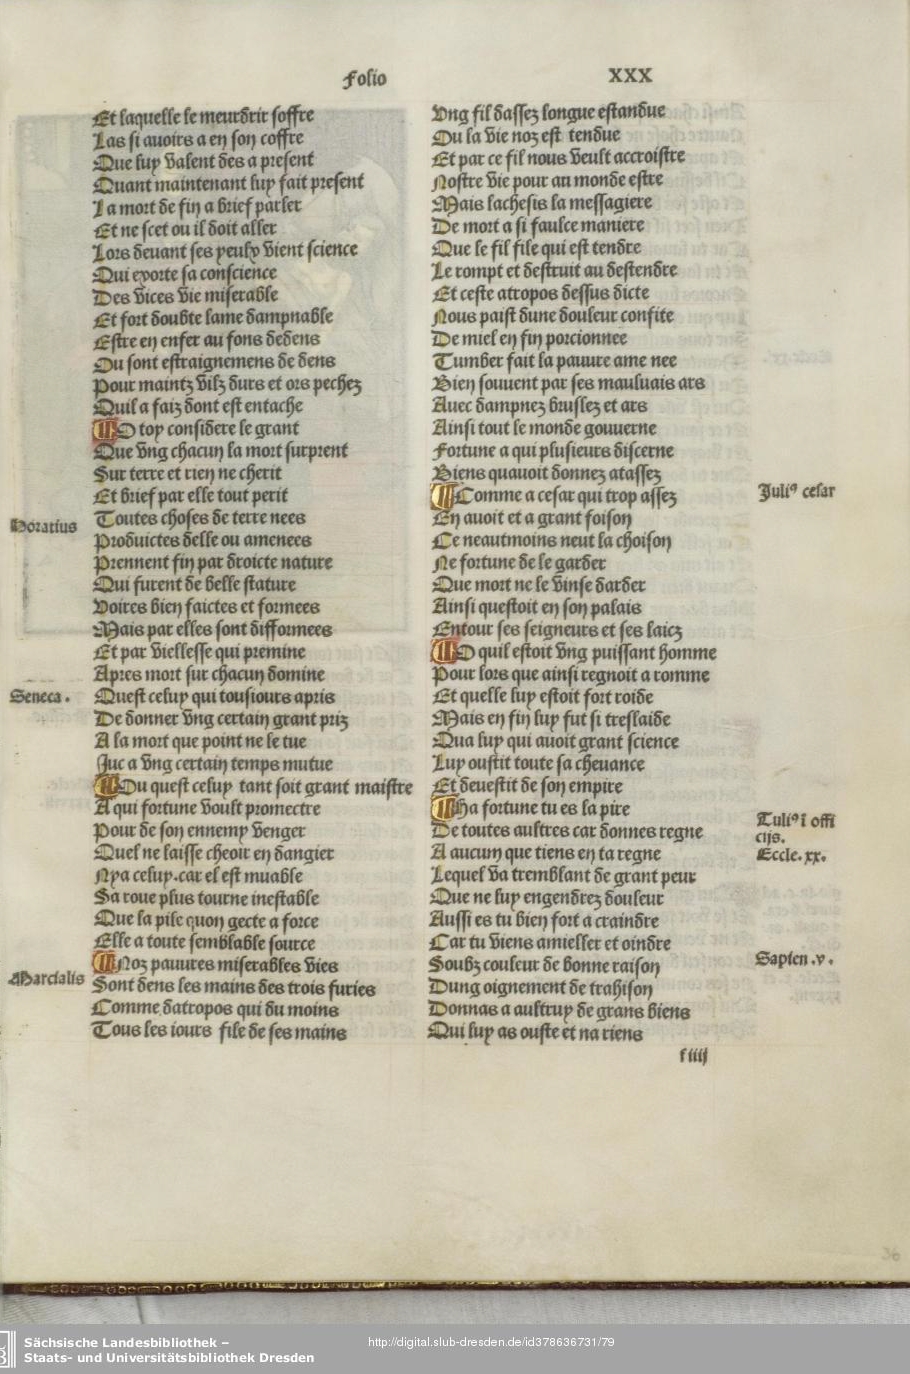 Folio XXX
Et laquelle le meurdrir soffre
Las si avoirs a en son coffre
Que luy valent des a present
Quant maintenant luy fait present
La mort de fin a brief parler
Et ne scet ou il doit aller
Lors devant ses yeulx vient science
Qui exorte sa conscience
Des vices vie miserable
Et fort doubte lame dampnable
Estre en enfer au fons dedens
Ou sont estraignemens de dens
Pour maintz vilz durs et ors pechez
Quil a faiz dont est entache
O toy considere le grant
Que vng chacun la mort surprent
Sur terre et rien ne cherit
Et brief par elle tout perit
Horatius
Toutes choses de terre nees
Produictes delle ou amenees
Prennent fin par droicte nature
Qui furent de belle stature
Voires bien faictes et formees
Mais par elles sont difformees
Et par viellesse qui premine
Apres mort sur chacun domine
Seneca.
Quest celuy qui tousiours apris
De donner vng certain grant priz
A la mort que point ne le tue
Juc a vng certain temps mutue
Ou quest celuy tant soit grant maistre
A qui fortune voult promectre
Pour de son ennemy venger
Quel ne laisse cheoir en dangier
Nya celuy.car el est muable
Sa roue plus tourne inestable
Que la pile quon gecte a force
Elle a toute semblable source
Marcialis
Noz pauvres miserables vies
Sont dens les mains des trois furies
Comme datropos qui du moins
Tous les iours file de ses mains
Vng fil dassez longue estandue
Ou la vie noz est tendue
Et par ce fil nous veult accroistre
Nostre vie pour au monde estre
Mais lachesis la messagiere
De mort a si faulce maniere
Que le fil file qui est tendre
Le rompt et destruit au destendre
Et ceste atropos dessus dicte
Nous paist dune douleur confite
De miel en fin porcionnee
Tumber fait la pauure ame nee
Bien souvent par ses maulvais ars
Avec dampnez bruslez et ars
Ainsi tout le monde gouverne
Fortune a qui plusieurs discerne
Biens quavoit donnez atassez
Juliꝰ cesar
Comme a cesar qui trop assez
En avoit et a grant foison
Ce neautmoins neut la choison
Ne fortune de le garder
Que mort ne le vinse darder
Ainsi questoit en son palais
Entour ses seigneurs et ses laicz
O quil estoit vng puissant homme
Pour lors que ainsi regnoit a romme
Et quelle luy estoit fort roide
Mais en fin luy fut si treslaide
Qua luy qui avoit grant science
Luy oustit toute sa chevance
Et devestit de son empire
Ha fortune tu es la pire
Tuliꝰ ī offi
cijs.
De toutes aultres car donnes regne
Eccle.xx.
A aucun que tiens en ta regne
Lequel va tremblant de grant peur
Que ne luy engendrez douleur
Aussi es tu bien fort a craindre
Car tu viens amieller et oindre
Sapien.v.
Soubz couleur de bonne raison
Dung oignement de trahison
Donnas a aultruy de grans biens
Qui luy as ouste et na riens
f iiij
36
Sächsische Landesbibliothek –
Staats- und Universitätsbibliothek Dresden
http://digital.slub-dresden.de/id378636731/79